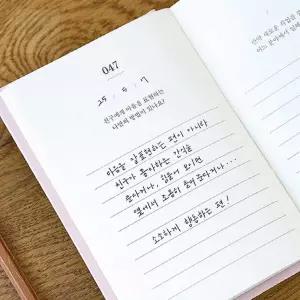 047
25 5 7
친구에게 마음을 표현하는
나만의 방법이 있나요?
마음을 잘 표현하는 편이 아니라
친구가 좋아하는 간식을
챙겨주거나, 힘들어 보이면
옆에서 조용히 들어주거나…
소소하게 행동하는 편!